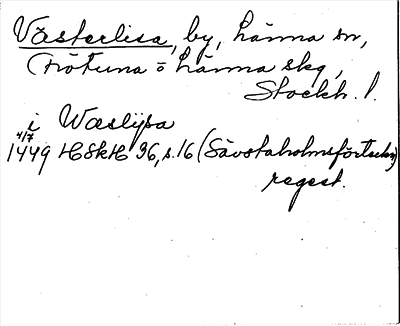 Västerlisa, by, Länna sn,
Frötuna o Länna skg,
Stockh. l.
i Wæslijsa
4/7
1449 HSkH 36, s. 16 (Sävstaholmsförteckn)
regest.